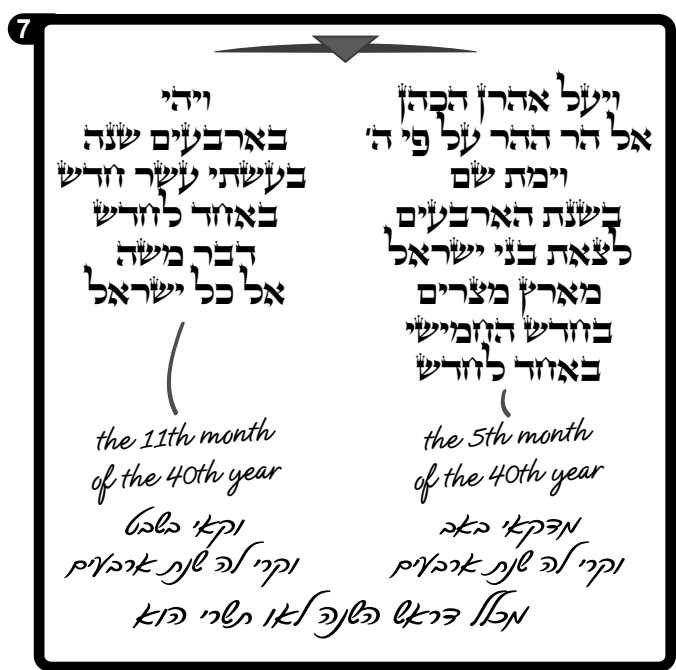 7
ויעל אהרן הכהן
אל הר ההר על פי ה'
וימת שם
בשנת הארבעים
לצאת בני ישראל
מארץ מצרים
בחדש החמישי
באחד לחדש
the 5th month
of the 40th year
מדקאי באב
וקרי לה שנת ארבעים
ויהי
בארבעים שנה
בעשתי עשר חדש
באחד לחדש
דבר משה
אל כל ישראל
the 11th month
of the 40th year
וקאי בשבט
וקרי לה שנת ארבעים
מכלל דראש השנה לאו תשרי הוא